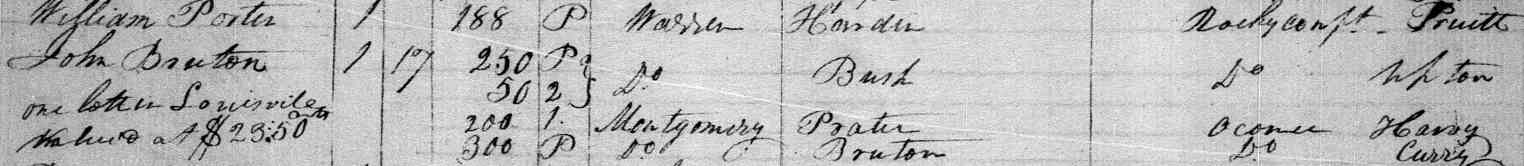 William Porter 1 188 P Warren Harden Rockycomft - Pruitt
John Bruton 1 17 250 P } Do Bush Do Upton
50 2
one lott in Louisvile 200 1. Montgomery Prater Oconee Harvy
Valued at $23.50 cnts 300 P Do Bruton Do Curry